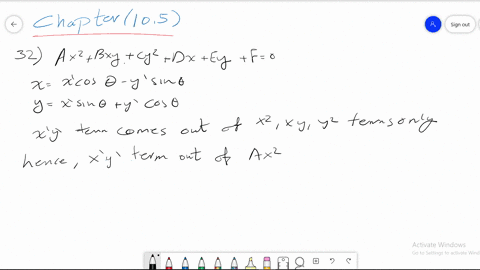 Chapter(10.5)
Sign out
32) Ax²+Bxy+Cy²+Dx+Ey+F=0
x= x'cos θ -y'sinθ
y= x'sinθ +y' cosθ
x'y' term comes out of x², xy, y² terms only
hence, x'y' term out of Ax²
Activate Windows
Go to Settings to activate Windows.